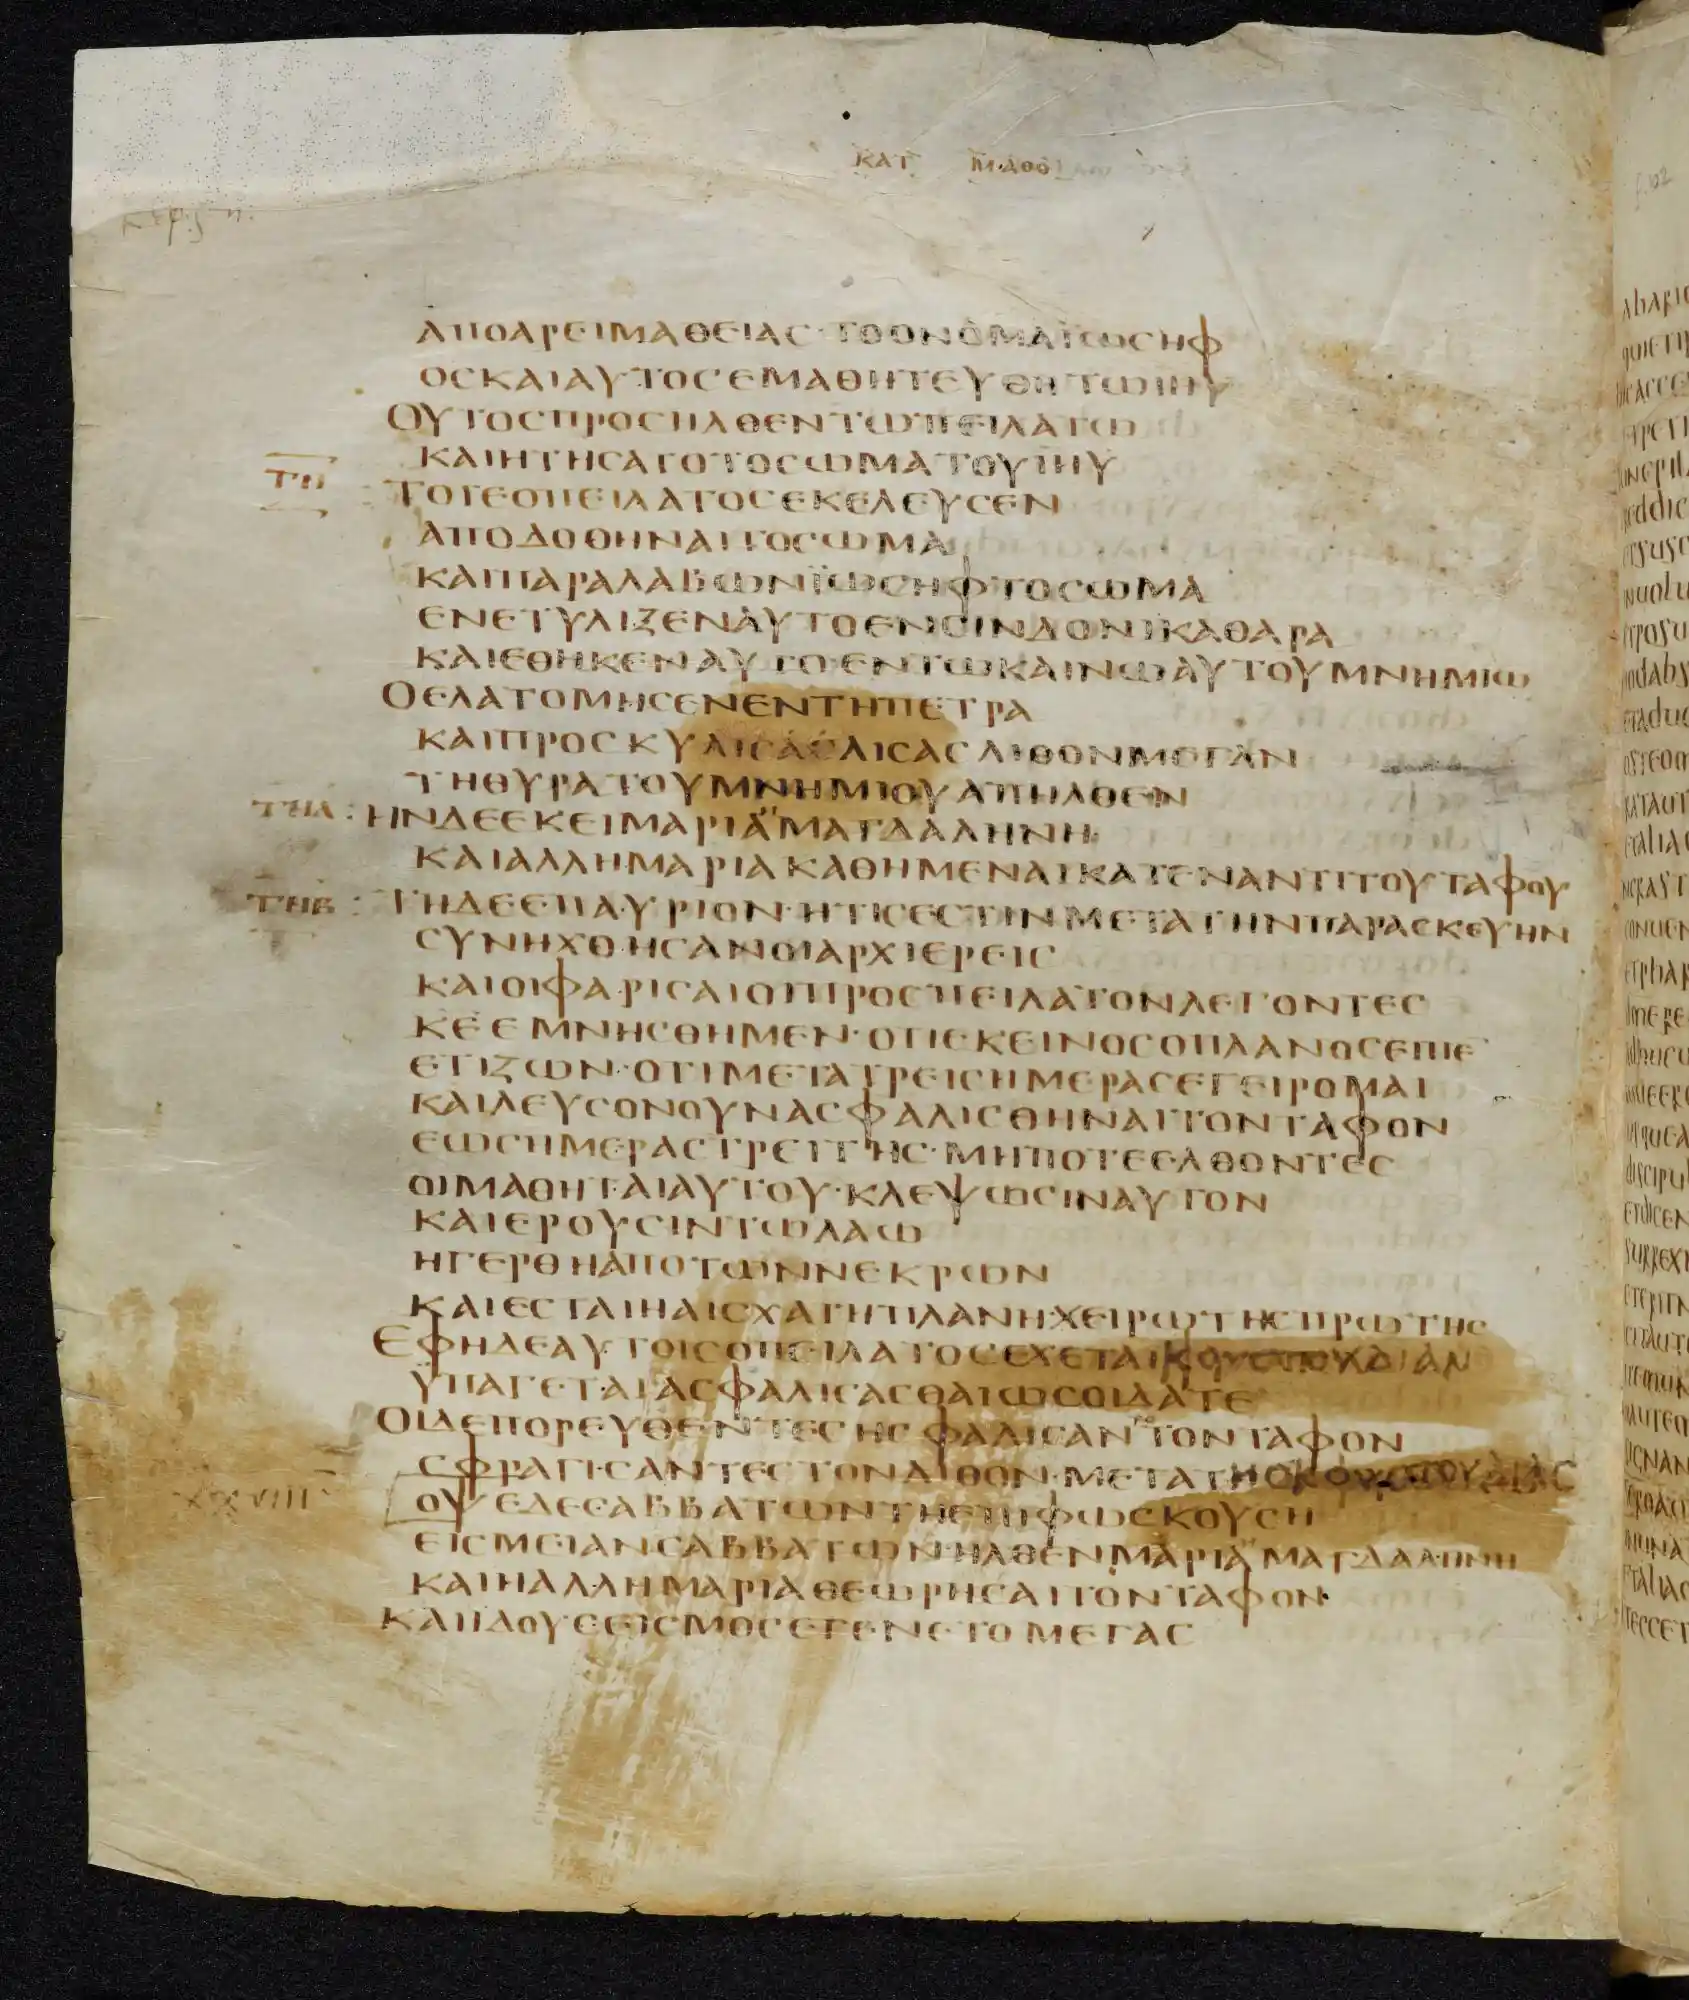 ΚΑΤ ΜΑΘΘ
ΑΠΟΑΡΕΙΜΑΘΕΙΑΣ·ΤΟΟΝΟΜΑΪΩΣΗΦ
ΟΣΚΑΙΑΥΤΟΣΕΜΑΘΗΤΕΥΘΗΤΩΙΗΥ
ΟΥΤΟΣΠΡΟΣΗΛΘΕΝΤΩΠΕΙΛΑΤΩ
ΚΑΙΗΤΗΣΑΤΟΤΟΣΩΜΑΤΟΥΙΗΥ
ΤΟΤΕΟΠΕΙΛΑΤΟΣΕΚΕΛΕΥΣΕΝ
ΑΠΟΔΟΘΗΝΑΙΤΟΣΩΜΑ
ΚΑΙΠΑΡΑΛΑΒΩΝΪΩΣΗΦΤΟΣΩΜΑ
ΕΝΕΤΥΛΙΞΕΝΑΥΤΟΕΝΣΙΝΔΟΝΙΚΑΘΑΡΑ
ΚΑΙΕΘΗΚΕΝΑΥΤΟ·ΕΝΤΩΚΑΙΝΩΑΥΤΟΥΜΝΗΜΙΩ
ΟΕΛΑΤΟΜΗΣΕΝΕΝΤΗΠΕΤΡΑ
ΚΑΙΠΡΟΣΚΥΛΙΣΑΣΛΙΣΑΣΛΙΘΟΝΜΕΓΑΝ
ΤΗΘΥΡΑΤΟΥΜΝΗΜΙΟΥΑΠΗΛΘΕΝ
ΤΛΑ : ΗΝΔΕΕΚΕΙΜΑΡΙΑΜΑΓΔΑΛΗΝΗ
ΚΑΙΑΛΛΗΜΑΡΙΑΚΑΘΗΜΕΝΑΙΚΑΤΕΝΑΝΤΙΤΟΥΤΑΦΟΥ
ΤΗΔΕΕΠΑΥΡΙΟΝ·ΗΤΙΣΕΣΤΙΝΜΕΤΑΤΗΝΠΑΡΑΣΚΕΥΗΝ
ΣΥΝΗΧΘΗΣΑΝΟΙΑΡΧΙΕΡΕΙΣ
ΚΑΙΟΙΦΑΡΙΣΑΙΟΙΠΡΟΣΠΕΙΛΑΤΟΝΛΕΓΟΝΤΕΣ
ΚΕΕΜΝΗΣΘΗΜΕΝ·ΟΤΙΕΚΕΙΝΟΣΟΠΛΑΝΟΣΕΙΠΕ
ΕΤΙΖΩΝ·ΟΤΙΜΕΤΑΤΡΕΙΣΗΜΕΡΑΣΕΓΕΙΡΟΜΑΙ
ΚΑΙΛΕΥΣΟΝΟΥΝΑΣΦΑΛΙΣΘΗΝΑΙΤΟΝΤΑΦΟΝ
ΕΩΣΗΜΕΡΑΣΤΡΕΙΤΗΣ·ΜΗΠΟΤΕΕΛΘΟΝΤΕΣ
ΟΙΜΑΘΗΤΑΙΑΥΤΟΥ·ΚΛΕΨΩΣΙΝΑΥΤΟΝ
ΚΑΙΕΡΟΥΣΙΝΤΩΛΑΩ
ΗΓΕΡΘΗΑΠΟΤΩΝΝΕΚΡΩΝ
ΚΑΙΕΣΤΑΙΗΑΙΣΧΑΤΗΠΛΑΝΗ·ΧΕΙΡΩΤΗΣΠΡΩΤΗΣ
ΕΦΗΔΕΑΥΤΟΙΣΟΠΕΙΛΑΤΟΣΕΧΕΤΑΙΚΟΥΣΤΟΥΔΙΑΝ
ΥΠΑΓΕΤΑΙΑΣΦΑΛΙΣΑΣΘΑΙΩΣΟΙΔΑΤΕ
ΟΙΔΕΠΟΡΕΥΘΕΝΤΕΣΗΣΦΑΛΙΣΑΝΤΟΝΤΑΦΟΝ
ΣΦΡΑΓΙΣΑΝΤΕΣΤΟΝΛΙΘΟΝ·ΜΕΤΑΤΗΣΚΟΥΣΤΟΥΔΙΑΣ
XXVIII ΟΨΕΔΕΣΑΒΒΑΤΩΝΤΗΕΠΙΦΩΣΚΟΥΣΗ
ΕΙΣΜΕΙΑΝΣΑΒΒΑΤΩΝ·ΗΛΘΕΝΜΑΡΙΑΜΑΓΔΑΛΗΝΗ
ΚΑΙΗΑΛΛΗΜΑΡΙΑΘΕΩΡΗΣΑΙΤΟΝΤΑΦΟΝ·
ΚΑΙΙΔΟΥΣΕΙΣΜΟΣΕΓΕΝΕΤΟΜΕΓΑΣ